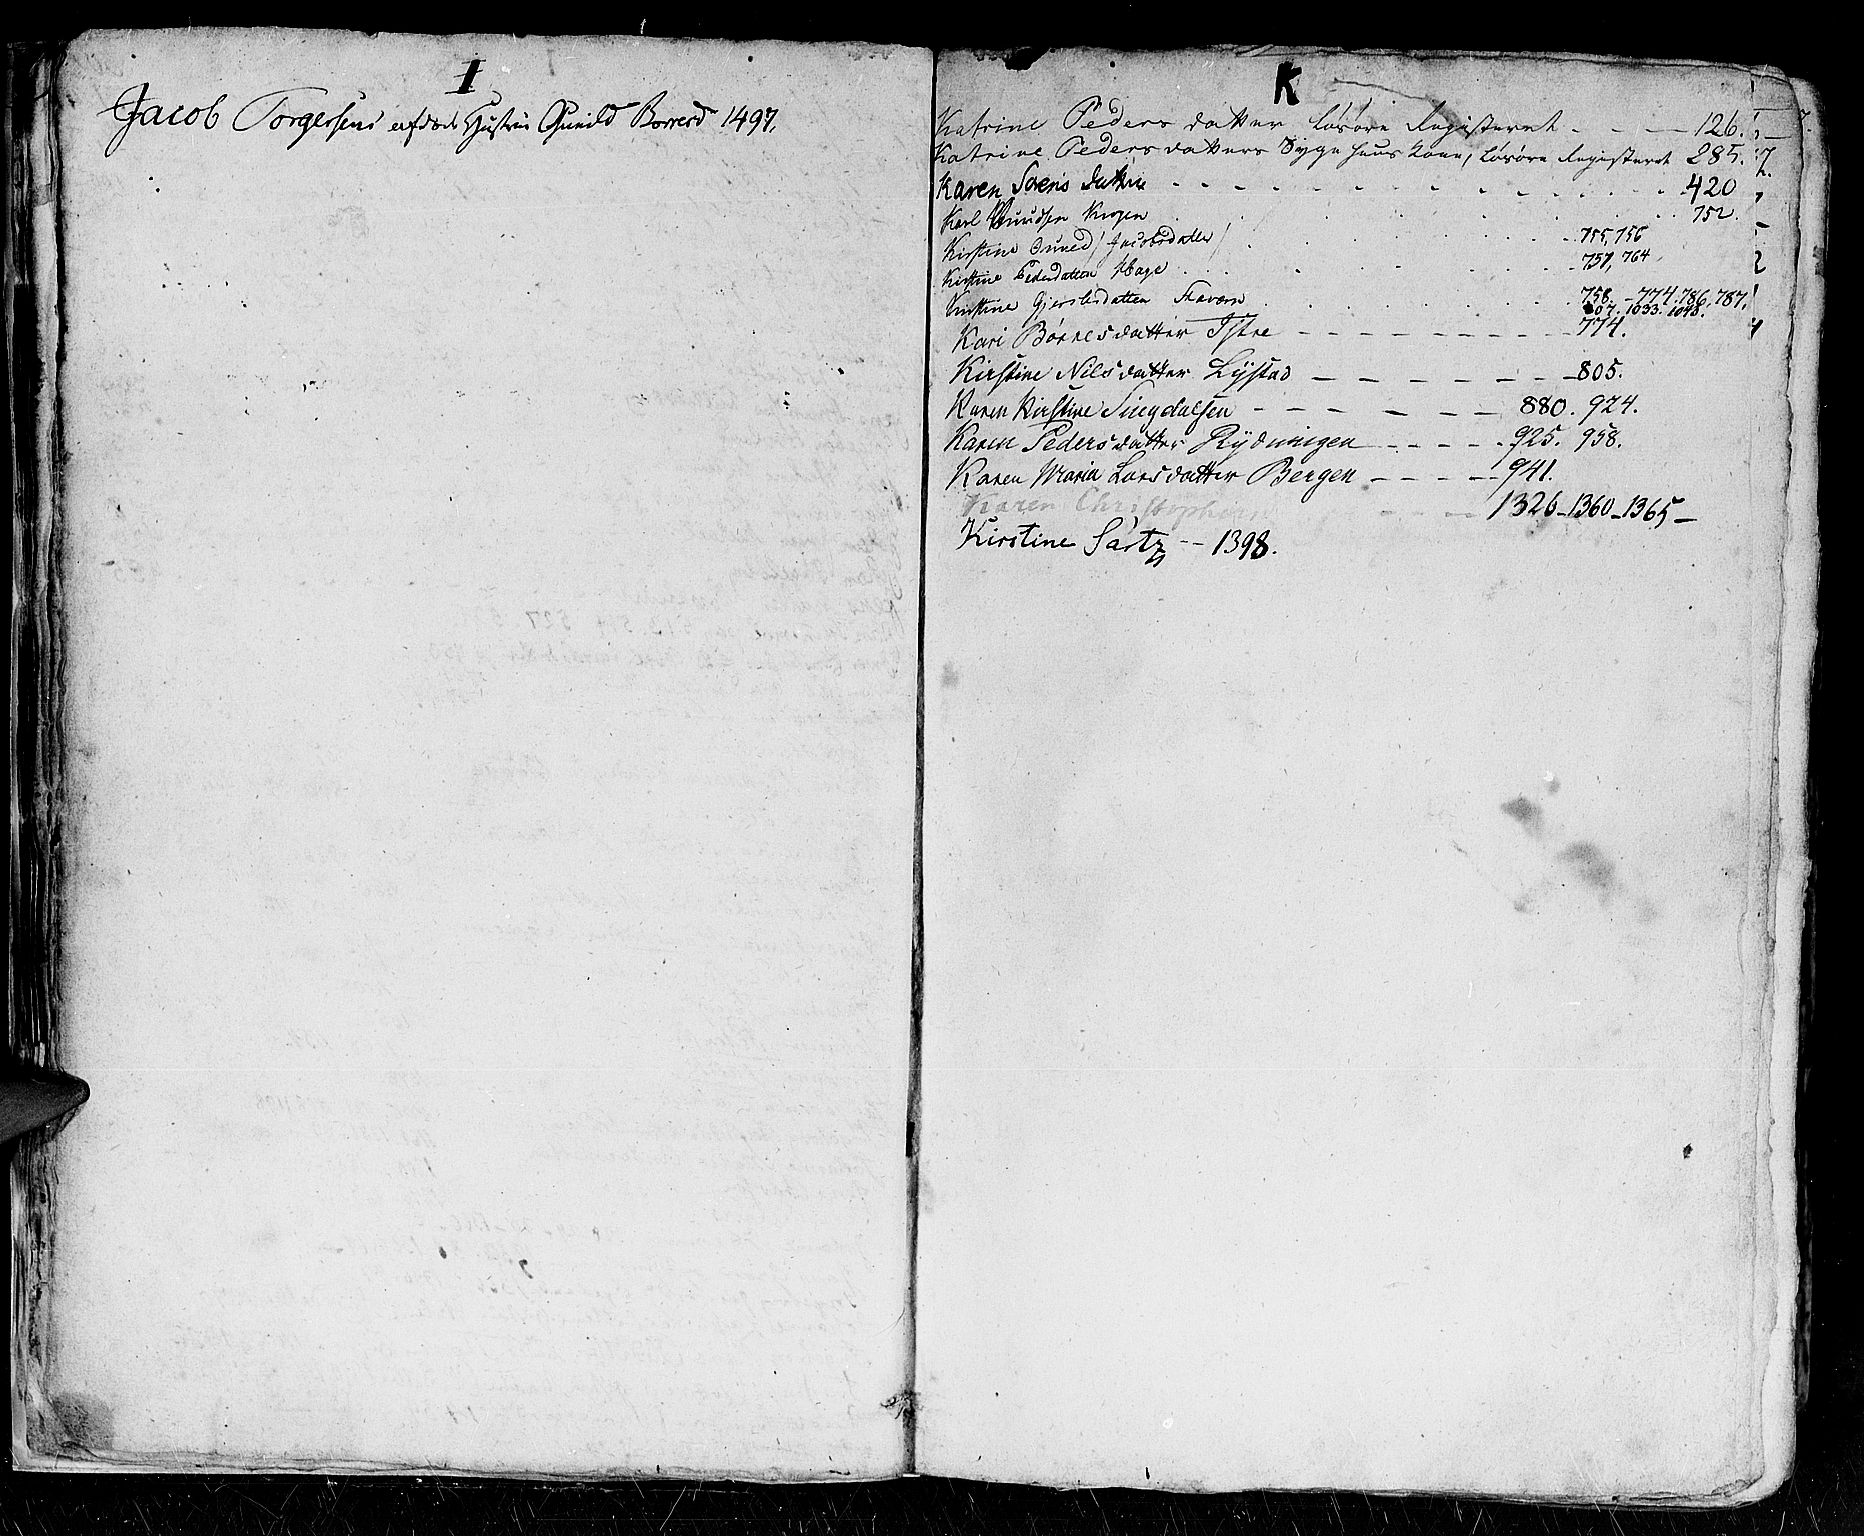 I
Jacob Torgersens afdøde Hustrue Gunild Borresd 1497.
K
Katrine Peders datter løsøre Registeret - - - 126.
Katrine Peders datters Syge huus kone, løsøre Registeret 285.
Karen Sørens datter - - - 420
Karl Knudsen Krogen 752.
Kirstine Jacobsdatter 755, 756
Kirstine Pedersdatter Hage 757, 764
Kirstine Gjertsdatter Stavern 758. - 774. 786, 787,
807. 1033. 1048.
Kari Børresdatter Tstre - - - 774.
Kirstine Nilsdatter Lystad - - - 805.
Karen Kirstine Singdalsen - - - 880. 924.
Karen Pedersdatter Rydningen - - - 925. 958.
Karen Maria Larsdatter Bergen - - - 941.
Karen Christophersen - - - 1326 - 1360 - 1365 -
Kirstine Sartz - - 1398.